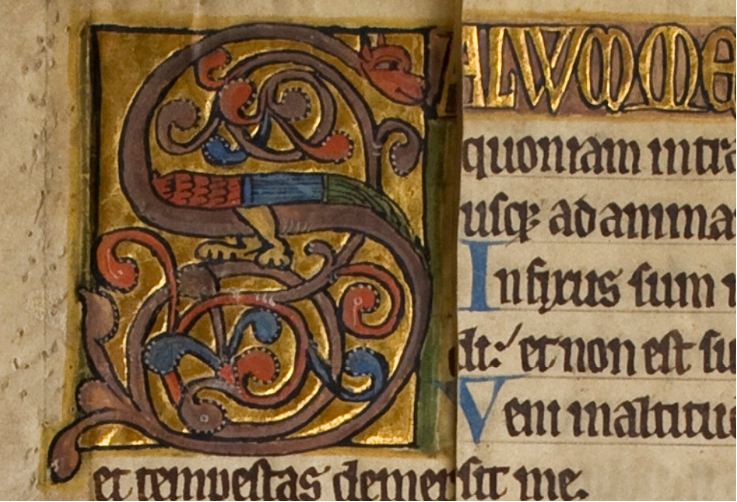 SALVVM ME
quoniam intra
usq; ad anima
Infixus sum
di: et non est su
Veni in altitud
et tempestas demersit me.